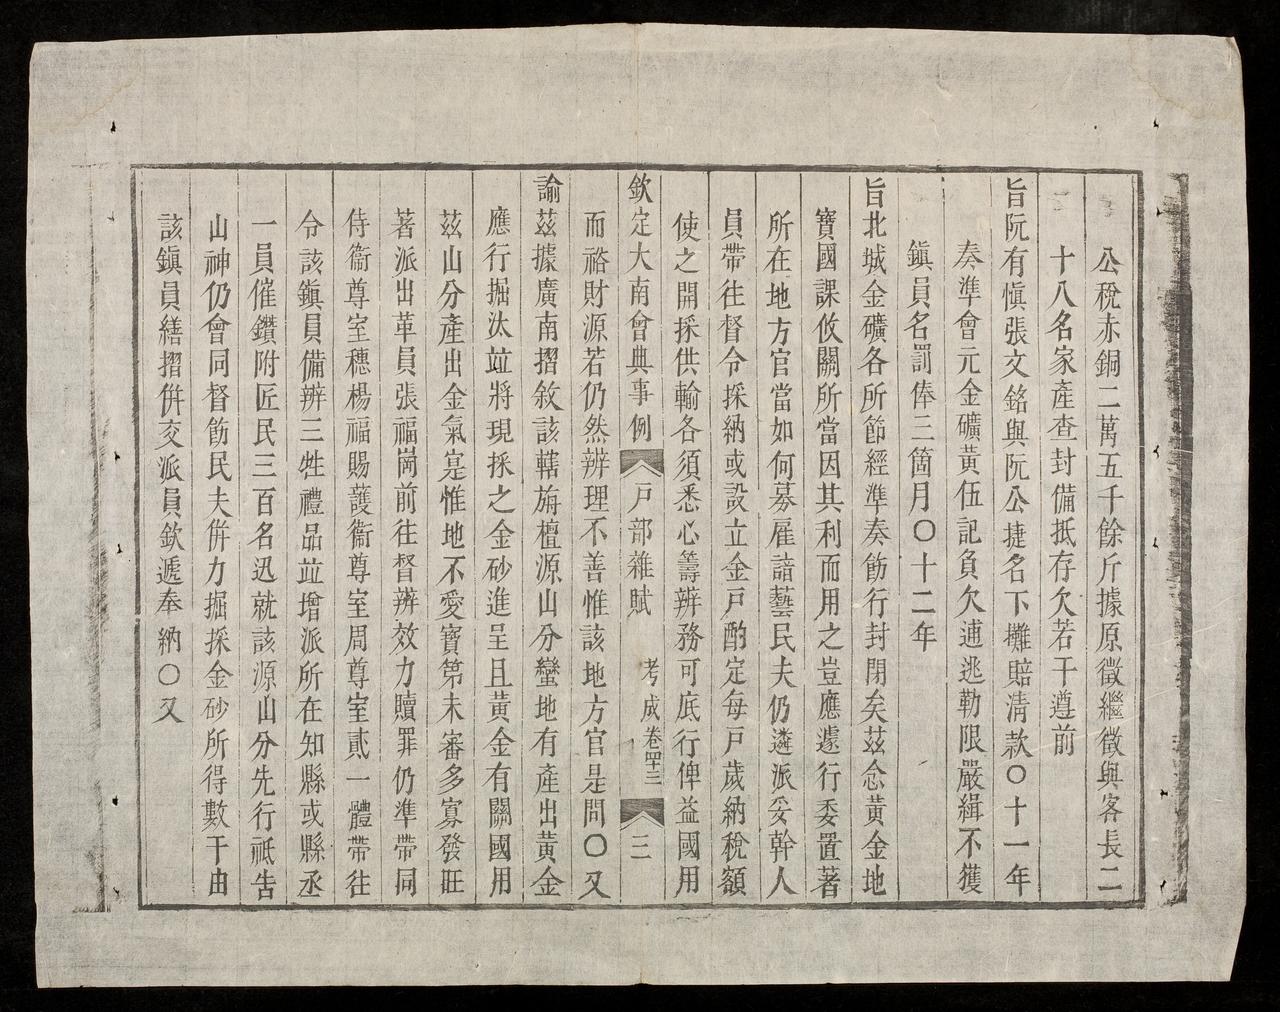 公稅赤銅二萬五千餘斤據原徵繼徵與客長二
十八名家產查封備抵存欠若干遵前
旨阮有愼張文銘與阮公捷名下攤賠清款〇十一年
奏準會元金礦黃伍記負欠逋逃勒限嚴緝不獲
鎭員名罰俸三箇月〇十二年
旨北城金礦各所節經準奏飭行封閉矣茲念黃金地
寶國課攸關所當因其利而用之豈應遽行委置著
所在地方官當如何募雇諳藝民夫仍遴派妥幹人
員帶往督令採納或設立金戸酌定每戸歲納稅額
使之開採供輸各須悉心籌辨務可底行俾益國用
欽定大南會典事例 戸部雜賦 考成 卷四十三 三
而裕財源若仍然辨理不善惟該地方官是問〇又
諭茲據廣南摺敘該轄旃檀源山分蠻地有產出黃金
應行掘汰竝將現採之金砂進呈且黃金有關國用
茲山分產出金氣寔惟地不愛寶第未審多寡發旺
著派出革員張福崗前往督辨效力贖罪仍準帶同
侍衞尊室穗楊福賜護衞尊室周尊室貳一體帶往
令該鎭員備辨三牲禮品竝增派所在知縣或縣丞
一員催鑽附匠民三百名迅就該源山分先行祗告
山神仍會同督飭民夫倂力掘採金砂所得數干由
該鎭員繕摺倂交派員欽遞奉納〇又